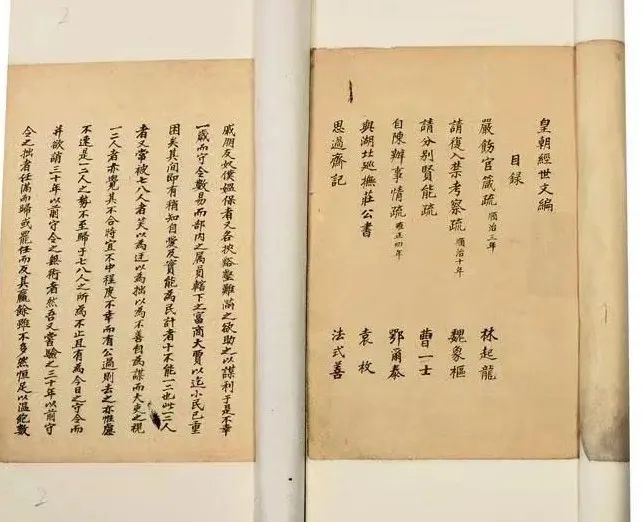 皇朝經世文編
目录
嚴飭官箴疏 順治三年 林起龍
請復入禁考察疏 順治十年 魏象樞
請分别賢能疏 曹一士
自陳辦事情疏 雍正四年 鄂爾泰
與湖北巡撫莊公書 袁枚
思過齋記 法式善
戚朋友奴僕媪保者又各挾谿壑難滿之欲助之以謀利于是不幸
一歲而守令數易而部内之属員轄下之富商大賈以迄小民已重
困矣其間即有稍知自愛及實能為民計者十不能一二也此一二人
者又常被七八人者笑以為迂以為拙以為不善自為謀而大吏之視
一二人者亦覺其不合時宜不中程度不幸而有公過則去之亦惟慮
不速是一二人之勢不至歸于七八人之所為不止且有為今日之守令而
并欲誚三十年以前守令之無術者然吾又嘗驗之三十年以前守
令之拙者任滿而歸或罷任而反其贏餘雖不多然恒足以温飽數
2
2